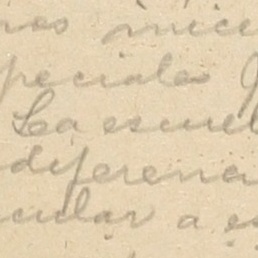 nos inice
peciales
La escuel
diferenc
cular a es